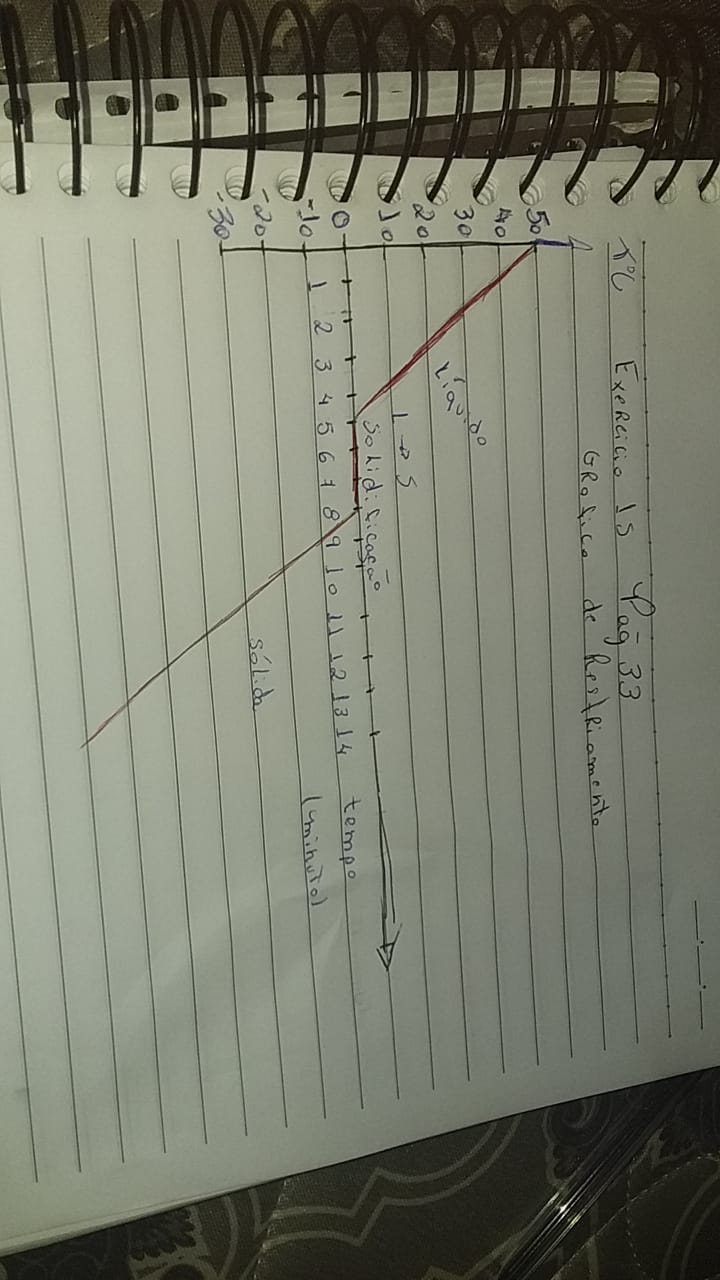 T°C Exercício 15 Pág 33
Gráfico de Resfriamento
50
40
30
20
10
0
-10
-20
-30
Líquido
L → S
Solidificação
1 2 3 4 5 6 7 8 9 10 11 12 13 14 tempo
(minuto)
Sólida